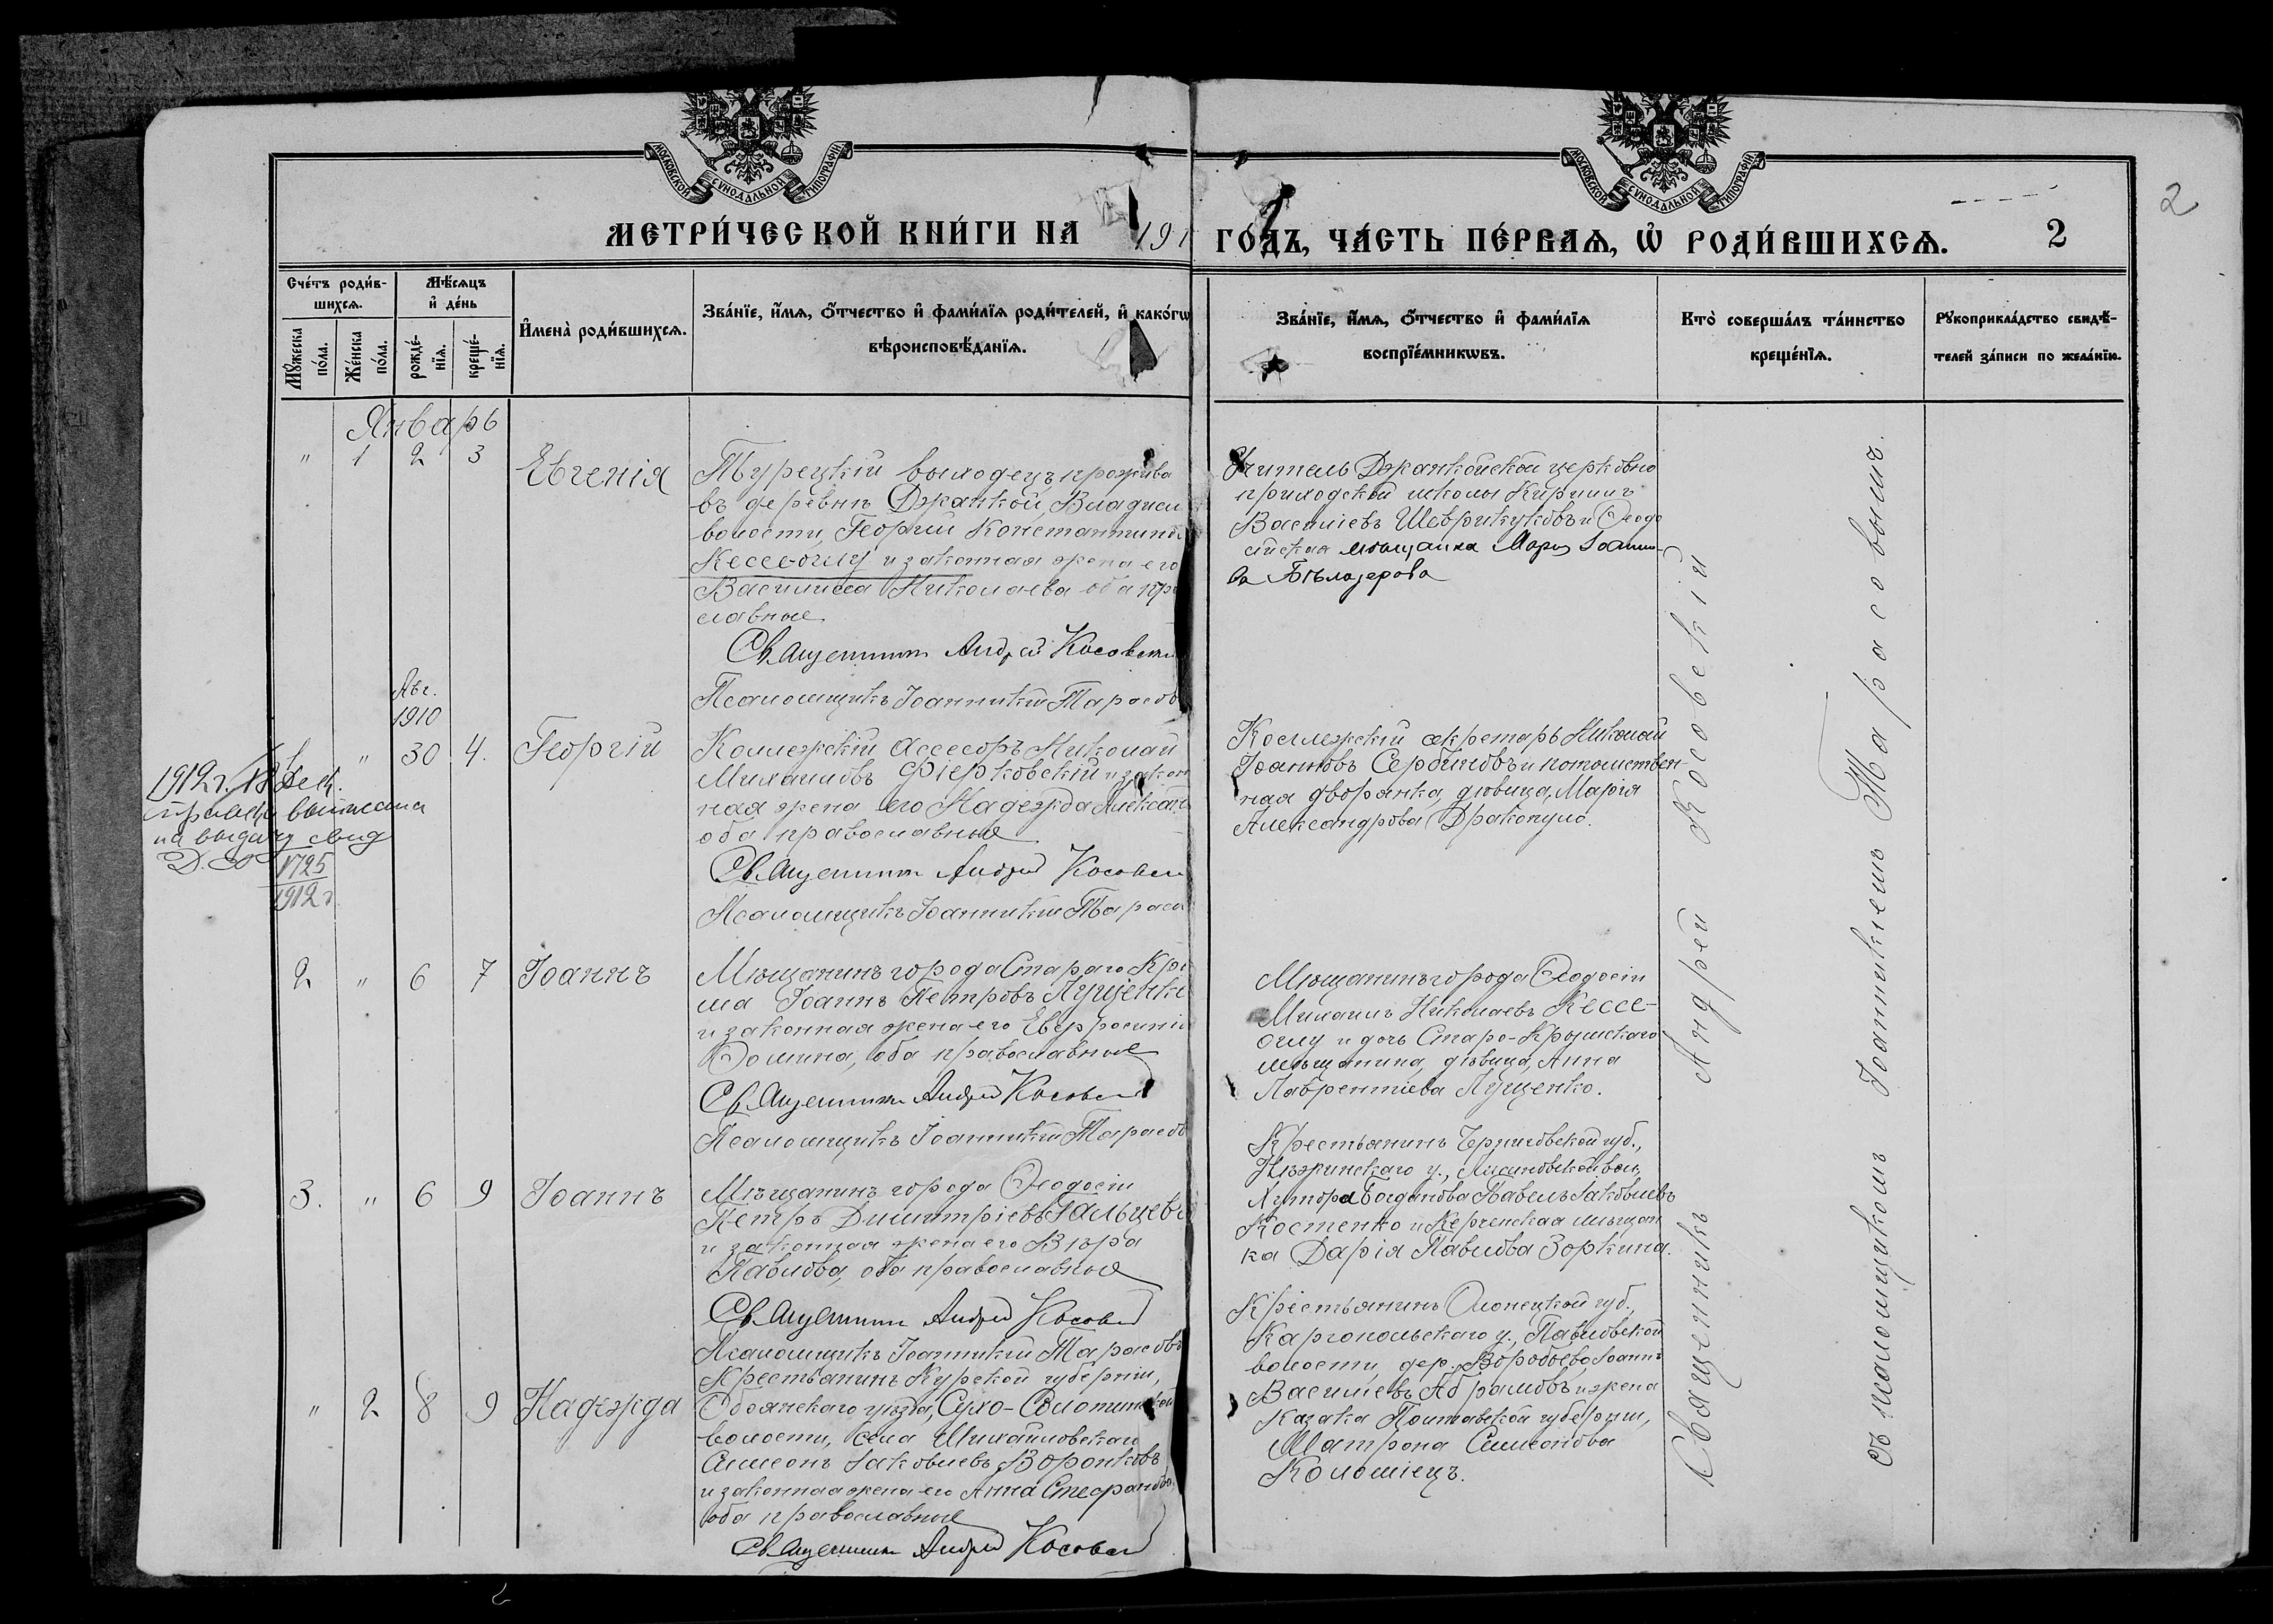 МОСКОВСКОЙ СѴНОДАЛЬНОЙ ТИПОГРАФІИ
МОСКОВСКОЙ СѴНОДАЛЬНОЙ ТИПОГРАФІИ
2
МЕТРИ́ЧЕСКОЙ КНИ́ГИ НА 191 ГО́ДЪ, ЧА́СТЬ ПЕ́РВАѦ, Ѡ҆ РОДИ́ВШИХСѦ. 2
Сче́тъ роди́в-
шихсѧ.
Мꙋ́жеска
по́ла.
Же́нска
по́ла.
Мѣ́сѧцъ
и҆ де́нь
рожде́-
нїѧ.
креще́-
нїѧ.
И҆мена̀ роди́вшихсѧ.
Зва́нїе, и҆́мѧ, ѻ҆́тчество и҆ фами́лїѧ роди́телей, и҆ како́гѡ
вѣроисповѣ́данїѧ.
Зва́нїе, и҆́мѧ, ѻ҆́тчество и҆ фами́лїѧ
воспрїе́мникѡвъ.
Кто̀ соверша́лъ та́инство
креще́нїѧ.
Рꙋкоприкла́дство свидѣ́-
телей за́писи по жела́нїю.
Январь
" 1 2 3 Евгенія
Турецкій выходецъ, прожива
въ деревнѣ Джанкой, Владисл
волости, Георгій Константинов
Кессе-оглу и законная жена его
Василисса Николаева оба пра
славные
Священникъ Андрей Косовскій
Псаломщикъ Іоанникій Тарасов
Учитель Джанкойской церковно
приходской школы Кириллъ
Василіевъ Шеврикуковъ и Ѳеодо
сійская мѣщанка Марія Іоанно-
ва Бѣлозерова
Авг.
1910
1 " 30 4. Георгій
Коллежскій Ассесоръ Николай
Михаиловъ Фіерковскій и закон
ная жена его Надежда Алексан
оба православные
Священникъ Андрей Косовскі
Псаломщикъ Іоанникій Тарасо
Коллежскій секретарь Николай
Іоанновъ Сербиновъ и потомствен-
ная дворянка, дѣвица, Марія
Александрова Дракопуло.
1912 г. 18 Дек.
на выдачу свид
1725
1912 г
2 " 6 7 Іоаннъ
Мѣщанинъ города Стараго Кры
ма Іоаннъ Петровъ Лущенко
и законная жена его Евфросинія
Ѳомина, оба православные
Священникъ Андрей Косовскі
Псаломщикъ Іоанникій Тарасов
Мѣщанинъ города Ѳеодосіи
Михаилъ Николаевъ Кессе-
оглу и дочь Старо-Крымскаго
мѣщанина, дѣвица, Анна
Лаврентіева Лущенко.
3. " 6 9 Іоаннъ
Мѣщанинъ города Ѳеодосіи
Петръ Димитріевъ Гальцевъ
и законная жена его Вѣра
Павлова, оба православные
Священникъ Андрей Косовскі
Псаломщикъ Іоанникій Тарасовъ
Крестьянинъ Черниговской губ.,
Нѣжинскаго у., вол,
Хутора Богданова Павелъ Іаковлевъ
Костенко и Керченская мѣщан
ка Дарія Павлова Зоркина.
" 2 8 9 Надежда
Крестьянинъ Курской губерніи,
Обоянскаго уѣзда, Сухо-Солотинской
волости, села Михайловскаго
Симеонъ Іаковлевъ Воронковъ
и законная жена его Анна Стефанова,
оба православные
Священникъ Андрей Косовскі
Крестьянинъ Олонецкой губ.,
Каргопольскаго у., Павловской
волости, дер. Воробьева, Іоаннъ
Василіевъ Абрамовъ и жена
казака Полтавской губерніи,
Матрона Симеонова
Коломіецъ.
Священникъ Андрей Косовскій
съ псаломщикомъ Іоанникіемъ Тарасовымъ.